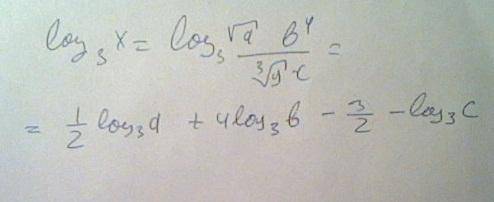 log₃ x = log₃ (√a b⁴)/(∛y c) =
= 1/2 log₃ a + 4 log₃ b - 3/2 - log₃ c